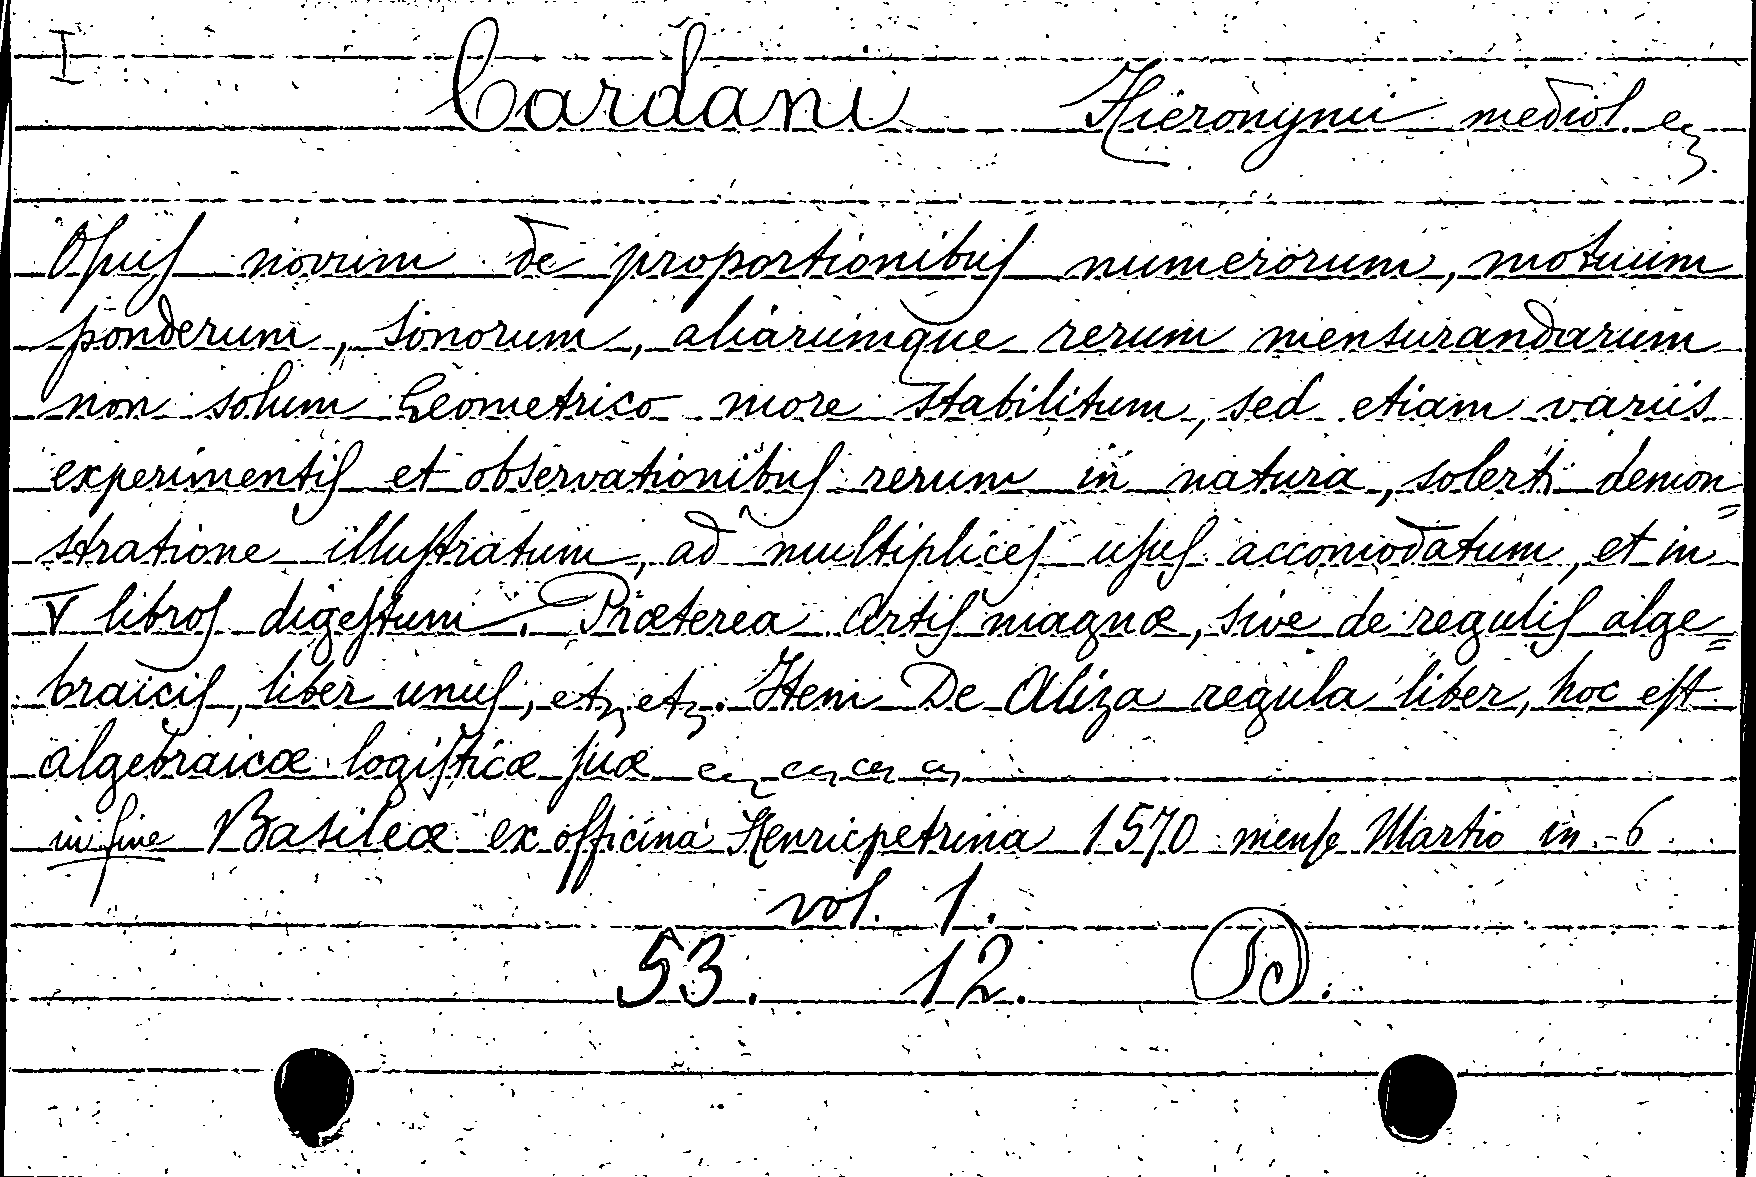 I
Cardani Hieronymi mediol. etc
Opus novum de proportionibus numerorum, motuum
ponderum, sonorum, aliarumque rerum mensurandarum
non solum Geometrico more stabilitum, sed etiam variis
experimentis et observationibus rerum in natura, solerti demon=
stratione illustratum, ad multiplices usus accomodatum, et in
V libros digestum. Præterea Artis magnæ, sive de regulis alge=
braicis, liber unus, etc etc. Item De Aliza regula liber, hoc est
algebraicæ logisticæ suæ etc etc etc etc
in fine Basileæ ex officina Henricpetrina 1570 mense Martio in-6
vol. 1.
53. 12. D.